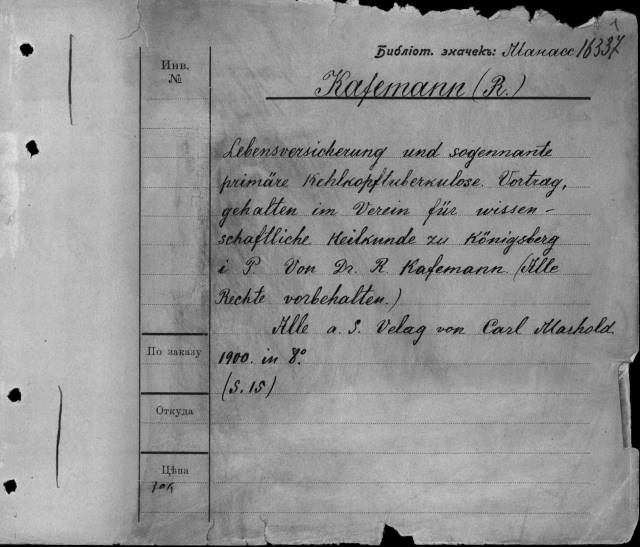 Библіот. значекъ: Манасс 16337
Инв.
№
Kafemann (R.)
Lebensversicherung und sogennante
primäre Kehlkopftuberkulose. Vortrag,
gehalten im Verein für wissen-
schaftliche Heilkunde zu Königsberg
i P. Von Dr. R. Kafemann. (Alle
Rechte vorbehalten.)
Alle a. S. Velag von Carl Marhold
По заказу
1900. in 8.°
(S. 15)
Откуда
Цѣна
10к